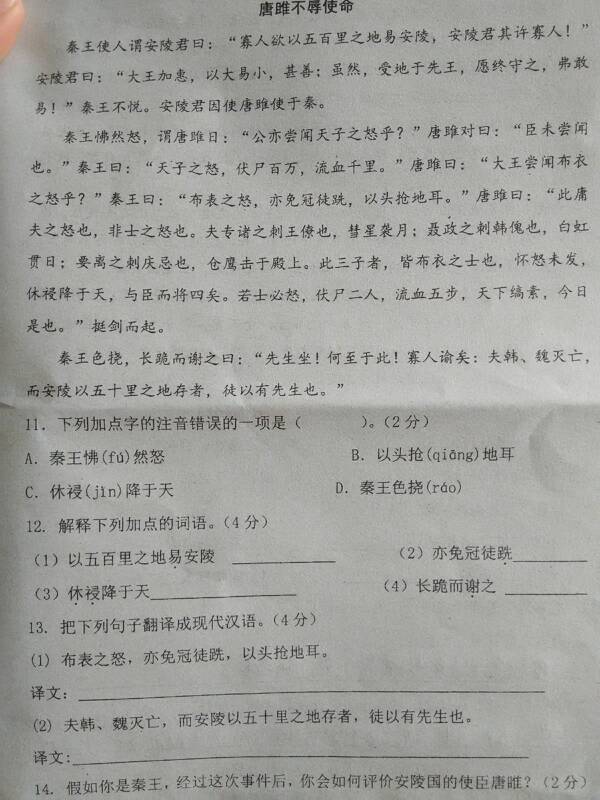 唐雎不辱使命
秦王使人谓安陵君曰：“寡人欲以五百里之地易安陵，安陵君其许寡人！”
安陵君曰：“大王加惠，以大易小，甚善；虽然，受地于先王，愿终守之，弗敢
易！”秦王不悦。安陵君因使唐雎使于秦。
秦王怫然怒，谓唐雎日：“公亦尝闻天子之怒乎？”唐雎对曰：“臣未尝闻
也。”秦王曰：“天子之怒，伏尸百万，流血千里。”唐雎曰：“大王尝闻布衣
之怒乎？”秦王曰：“布表之怒，亦免冠徒跣，以头抢地耳。”唐雎曰：“此庸
夫之怒也，非士之怒也。夫专诸之刺王僚也，彗星袭月；聂政之刺韩傀也，白虹
贯日；要离之刺庆忌也，仓鹰击于殿上。此三子者，皆布衣之士也，怀怒未发，
休祲降于天，与臣而将四矣。若士必怒，伏尸二人，流血五步，天下缟素，今日
是也。”挺剑而起。
秦王色挠，长跪而谢之曰：“先生坐！何至于此！寡人谕矣：夫韩、魏灭亡，
而安陵以五十里之地存者，徒以有先生也。”
11．下列加点字的注音错误的一项是（　　）。(2分)
A．秦王怫(fú)然怒　　B．以头抢(qiāng)地耳
C．休祲(jìn)降于天　　D．秦王色挠(ráo)
12. 解释下列加点的词语。(4分)
(1）以五百里之地易安陵 ________ （2）亦免冠徒跣________
(3）休祲降于天________ （4）长跪而谢之 ________
13. 把下列句子翻译成现代汉语。(4分)
(1) 布表之怒，亦免冠徒跣，以头抢地耳。
译文：________
(2) 夫韩、魏灭亡，而安陵以五十里之地存者，徒以有先生也。
译文:________
14. 假如你是秦王，经过这次事件后，你会如何评价安陵国的使臣唐雎？(2分)